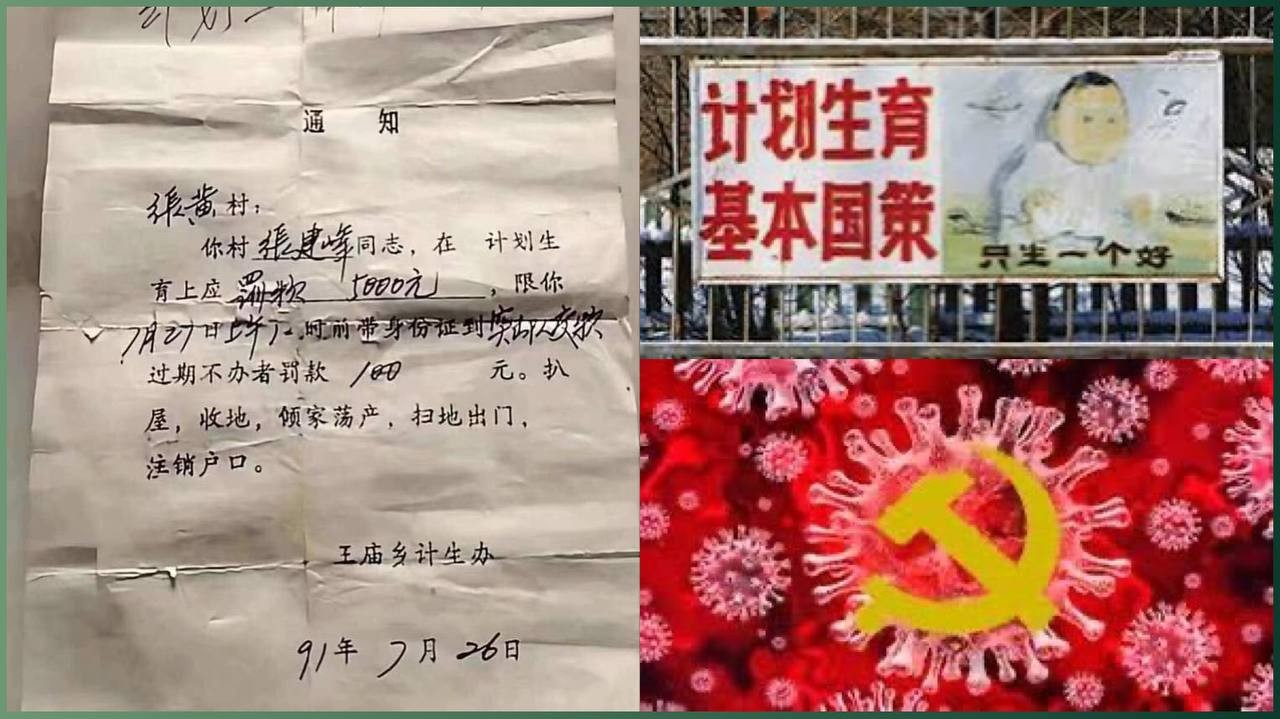 通 知
張黄村：
你村張建峰同志，在 计划生
育上应罰款 5000元，限你
7月27日上午12时前带身份证到突击队交款
过期不办者罚款 100 元。扒
屋，收地，倾家荡产，扫地出门，
注销户口。
王庙乡计生办
91年 7月 26日
计划生育
基本国策
只生一个好